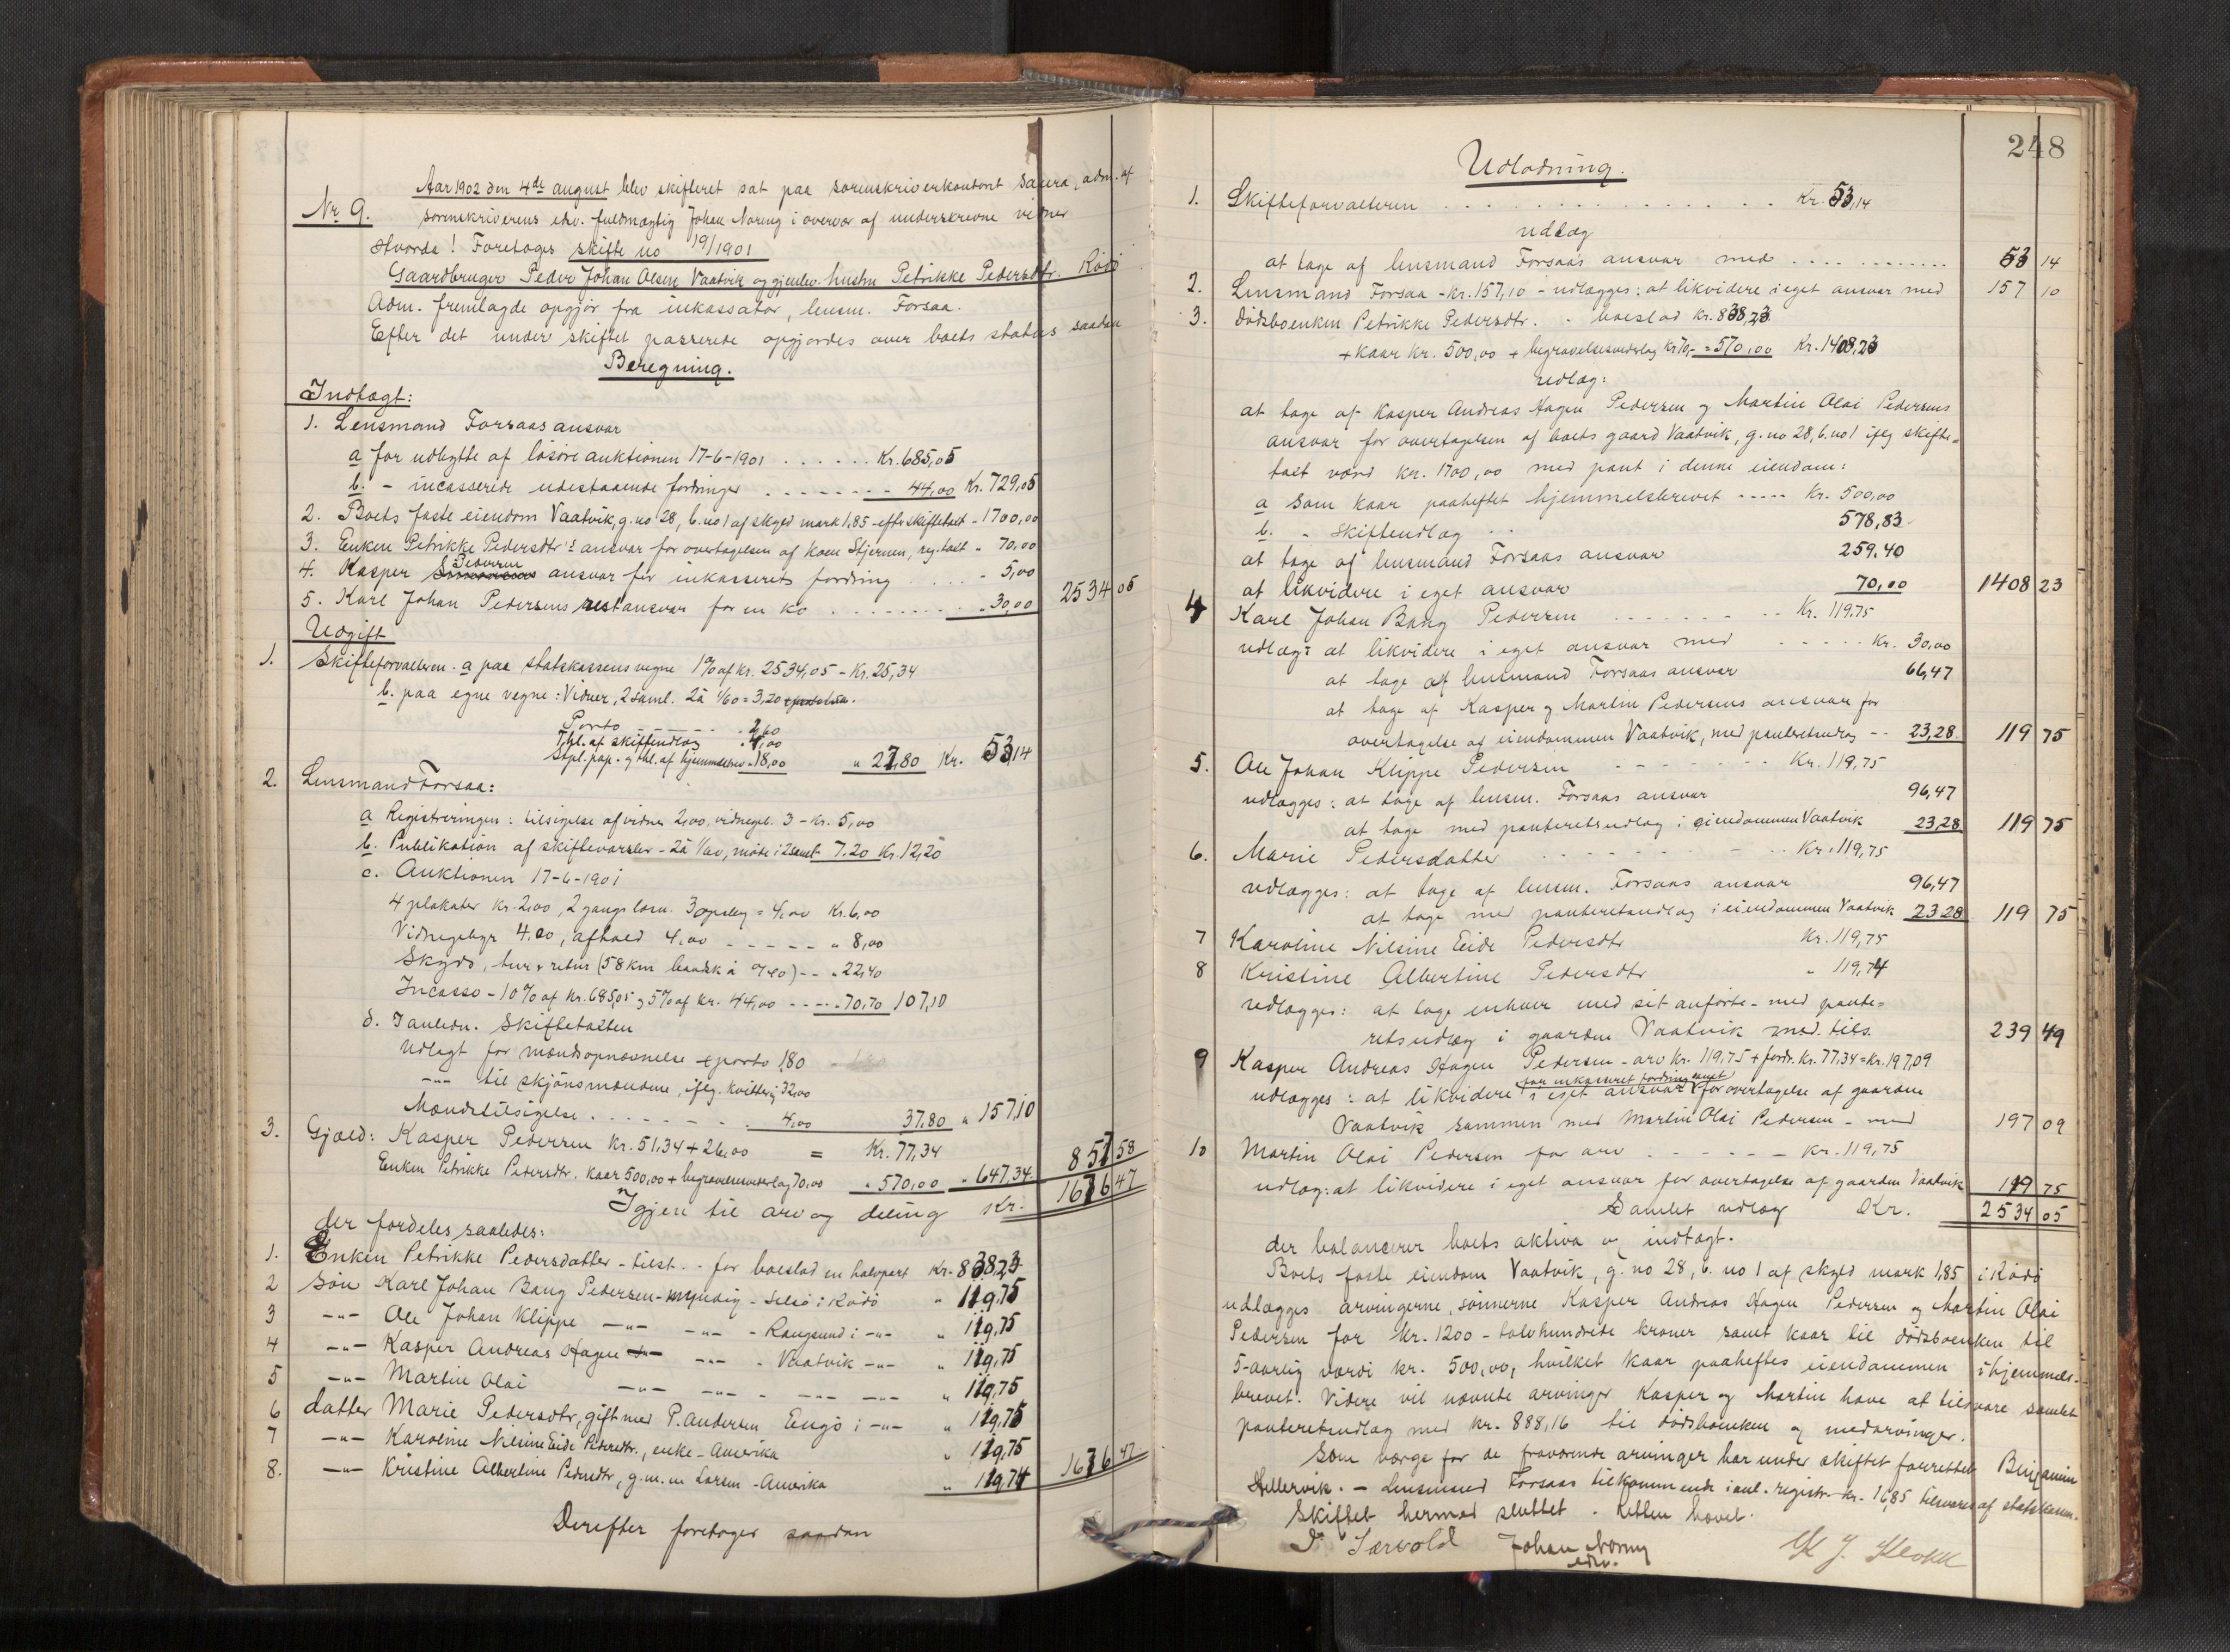 Aar 1902 den 4de august blev skifteret sat paa sorenskriverkontoret Saura, adm. af
Nr 9. sorenskriverens edsv. fuldmægtig Johan Noring i overvær af underskrevne vidner
Hvorda! Foretoges skifte no 19/1901
Gaardbruger Peder Johan Olsen Vaatvik og gjenlev. hustru Petrikke Pedersdtr. Rödö
Adm. fremlagde opgjör fra inkassator, lensm. Forsaa.
Efter det under skiftet passerede opgjordes over boets status saadan
Beregning.
Indtægt:
1. Lensmand Forsaas ansvar
a for udbytte af lösöreauktionen 17-6-1901 . . . . . . Kr. 685,05
b. - incasserede udestaaende fordringer . . . . . . . . 44,00 Kr. 729,05
2. Boets faste eiendom Vaatvik, g. no 28, b. no 1 af skyld mark 1,85 - efter skiftetaxt - 1700,00
3. Enken Petrikke Pedersdtr's ansvar for overtagelsen af koen Stjernen, reg. taxt " 70,00
4. Kasper Pedersen ansvar for inkasserets fordring . . . . - 5,00
5. Karl Johan Pedersens restansvar for en ko . . . . . . . . . " 30,00 2534 05
Udgift
1. Skifteforvalteren. a paa statskassens vegne 1% af kr. 2534,05 - Kr. 25,34
b. paa egne vegne: Vidner, 2 saml. 2 à 1/60 = 3,20
Porto . . . . . . 2,60
Thl. af skifteudlæg " 4,00
Stpl. pap. og thl. af hjemmelsbrev " 18,00 " 27,80 Kr. 53,14
2. Lensmand Forsaa:
a Registreringen: tilsigelse af vidner 2,00, vidnegeb. 3 - Kr. 5,00
b. Publikation af skiftevarsler - 2 à 1/00, möte i 2 saml 7.20 Kr. 12,20
c. Auktionen 17-6-1901
4 plakater kr. 2,00, 2 gangs læsn. 3 opslag = 4,00 Kr. 6,00
Vidnegebyr 4.00, afhold 4,00 - - - - - " 8,00
Skyds, tur & retur (58 km baadsk à 0/40) - - " 22,40
Incasso - 10% af kr. 685,05 og 5% af kr. 44,00 - - - - 70,70 107,10
d. I anledn. Skiftetaxten
Udlagt for mændsopnævnelse & porto 1,80
-"- til skjönsmændene, iflg. kvittering 32,00
Mændstilsigelse . . . . . . . . 4,00 37,80 " 157,10
3. Gjæld: Kasper Pedersen kr. 51,34 + 26,00 = Kr. 77,34
Enken Petrikke Pedersdtr. kaar 500,00 + begravelsesvederlag 70,00 " 570,00 " 647,34 857 58
Igjen til arv og deling Kr. 1676 47
der fordeles saaledes:
1. Enken Petrikke Pedersdatter - tilst. - for boeslod en halvpart Kr. 838,23
2 Sön Karl Johan Bang Pedersen - myndig - Selsö i Rödö " 119,75
3 -"- Ole Johan Klippe -"- -"- - Rangsund i -"- " 119,75
4 -"- Kasper Andreas Hagen -"- -"- - Vaatvik -"- " 119,75
5 -"- Martin Olai -"- -"- - -"- -"- " 119,75
6 datter Marie Pedersdtr, gift med P. Andersen Engö i -"- " 119,75
7 -"- Karoline Nilsine Eide Pedersdtr., enke - Amerika " 119,75
8. -"- Kristine Albertine Pedersdtr, g. m. m Larsen - Amerika " 119,74 1676 47
Derefter foretoges saadan
248
Udlodning.
1. Skifteforvalteren . . . . . . . . . . . . . . Kr. 53,14
udlæg
at tage af lensmand Forsaas ansvar med . . . . . . . . . . . . 53 14
2. Lensmand Forsaa - kr. 157,10 - udlægges: at likvidere i eget ansvar med 157 10
3. Dödsboenken Petrikke Pedersdtr. - boeslod kr. 838,23
+ kaar kr. 500,00 + begravelsesvederlag kr 70,- = 570,00 Kr. 1408,23
udlæg:
at tage af Kasper Andreas Hagen Pedersen og Martin Olai Pedersens
ansvar for overtagelsen af boets gaard Vaatvik, g. no 28, b. no 1 iflg skifte=
taxt værd kr. 1700,00 med pant i denne eiendom:
a som kaar paaheftet hjemmelsbrevet - - - - - Kr. 500,00
b. " skifteudlæg - - 578,83
at tage af lensmand Forsaas ansvar 259.40
at likvidere i eget ansvar 70,00 1408 23
4 Karl Johan Bang Pedersen . . . . . . . . . Kr. 119,75
udlæg: at likvidere i eget ansvar med - - - - - Kr. 30,00
at tage af lensmand Forsaas ansvar 66,47
at tage af Kasper og Martin Pedersens ansvar for
overtagelse af eiendommen Vaatvik, med panteretsudlæg - - 23,28. 119 75
5. Ole Johan Klippe Pedersen - - - - - - - Kr. 119,75
udlægges: at tage af lensm. Forsaas ansvar 96,47
at tage med panteretsudlæg i eiendommen Vaatvik 23,28 119 75
6. Marie Pedersdatter . . . . . . . . . Kr. 119,75
udlægges: at tage af lensm. Forsaas ansvar 96,47
at tage med panteretsudlæg i eiendommen Vaatvik 23 28 119 75
7 Karoline Nilsine Eide Pedersdtr Kr. 119,75
8 Kristine Albertine Pedersdtr " 119,74
udlægges: at tage enhver med sit anförte - med pante=
retsudlæg i gaarden Vaatvik med tils. 239 49
9 Kasper Andreas Hagen Pedersen - arv kr. 119,75 + fordr. kr. 77,34 = kr. 197,09
for inkasseret fordring samt
udlægges: at likvidere i eget ansvar for overtagelse af gaarden
Vaatvik sammen med Martin Olai Pedersen - med 197 09
10 Martin Olai Pedersen for arv . - - - - - Kr. 119,75
udlæg: at likvidere i eget ansvar for overtagelse af gaarden Vaatvik 119 75
Samlet udlæg Kr. 2534 05
der balancerer boets aktiva og indtægt.
Boets faste eiendom Vaatvik, g. no 28, b. no 1 af skyld mark 1,85 i Rödö
udlægges arvingerne, sönnerne Kasper Andreas Hagen Pedersen og Martin Olai
Pedersen for kr. 1200 - tolvhundrede kroner samt kaar til dödsboenken til
5-aarlig værdi kr. 500,00, hvilket kaar paaheftes eiendommen i hjemmels-
brevet. Videre vil nævnte arvinger Kasper og Martin have at tilsvare samlet
panteretsudlæg med kr. 888,16 til dödsboenken og medarvinger.
Som værge for de fraværende arvinger har under skiftet forrettet Benjamin
Hellervik. - Lensmand Forsaas tilkommende i anl. registr. kr. 16,85 tilsvares af statskassen.
Skiftet hermed sluttet. Retten hævet.
Johan Noring
edsv.